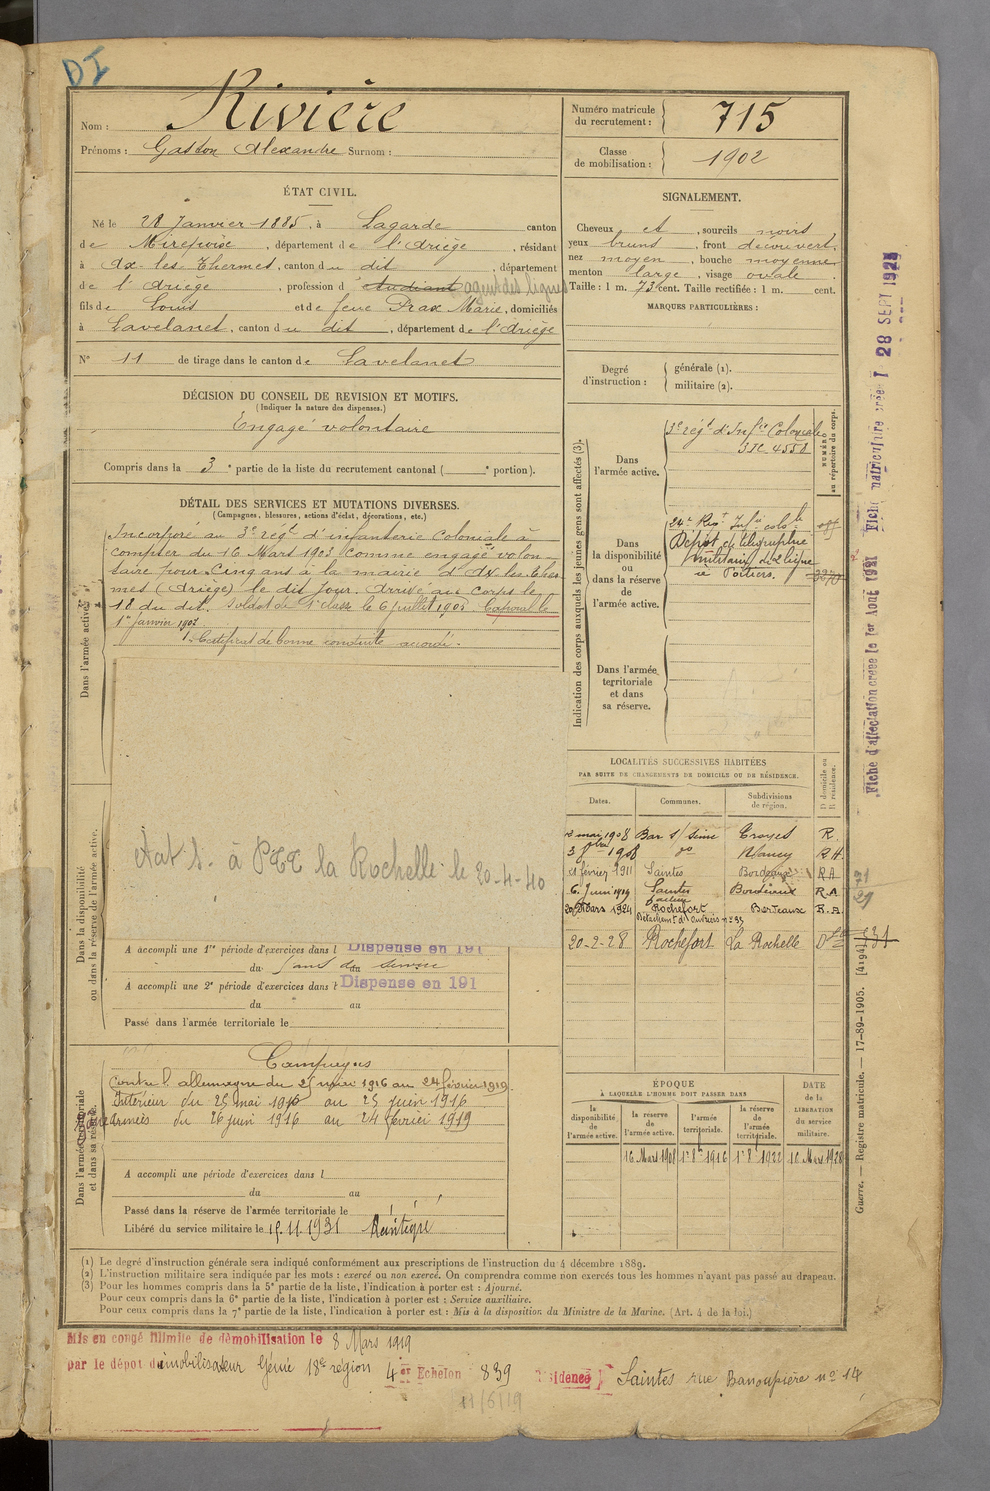 DI
Nom : Rivière
Prénoms : Gaston Alexandre Surnom :
Numéro matricule du recrutement : 715
Classe de mobilisation : 1902
ÉTAT CIVIL.
Né le 28 Janvier 1885, à Lagarde canton
de Mirepoix, département de l'Ariège, résidant
à Ax-les-Thermes, canton du dit, département
de l'Ariège, profession d étudiant agent des lignes
fils de Louis et de feue Prax Marie, domiciliés
à Lavelanet, canton du dit, département de l'Ariège
N° 11 de tirage dans le canton de Lavelanet
SIGNALEMENT.
Cheveux et, sourcils noirs
yeux bruns, front découvert,
nez moyen, bouche moyenne
menton large, visage ovale
Taille : 1 m. 73 cent. Taille rectifiée : 1 m. cent.
MARQUES PARTICULIÈRES :
DÉCISION DU CONSEIL DE REVISION ET MOTIFS.
(Indiquer la nature des dispenses.)
Engagé volontaire
Compris dans la 3e partie de la liste du recrutement cantonal ( e portion).
Degré d'instruction :
générale (1).
militaire (2).
DÉTAIL DES SERVICES ET MUTATIONS DIVERSES.
(Campagnes, blessures, actions d'éclat, décorations, etc.)
Dans l'armée active.
Incorporé au 3e régt d'infanterie Coloniale à
compter du 16 Mars 1903 comme engagé volon-
taire pour Cinq ans à la mairie d'Ax-les-Ther
mes (Ariège) le dit jour. Arrivé au corps le
18 du dit. Soldat de 1e classe le 6 juillet 1903 Caporal le
1er janvier 1907
Certificat de bonne conduite accordé.
Indication des corps auxquels les jeunes gens sont affectés (3).
NUMÉRO au répertoire du corps.
Dans l'armée active.
3e régt d'Infie Coloniale
4558
Dans la disponibilité ou dans la réserve de l'armée active.
24e Rgt Infie colole
Dépôt de télégraphie
militaire de 2e ligne
de Poitiers.
Dans l'armée territoriale et dans sa réserve.
Fiche d'affectation créée le 1er Août 1921
Fiche matriculaire créée 28 SEPT 1928
Dans la disponibilité ou dans la réserve de l'armée active.
Etat S. à PTT la Rochelle le 20-4-40
A accompli une 1re période d'exercices dans l Dispensé en 191
du au
A accompli une 2e période d'exercices dans l Dispensé en 191
du au
Passé dans l'armée territoriale le
LOCALITÉS SUCCESSIVES HABITÉES
PAR SUITE DE CHANGEMENTS DE DOMICILE OU DE RÉSIDENCE.
Dates. Communes. Subdivisions de région. D domicile ou R résidence.
mai 1908 Bar s/ Seine Troyes R.
3 9bre 1908 do Nancy R.A.
février 1911 Saintes Bordeaux R.A.
6 Juin 1919 Saintes Bordeaux R.A
Mars 1924 Rochefort Bordeaux R.A.
20-2-28 Rochefort La Rochelle
Dans l'armée territoriale et dans sa réserve.
Campagnes
Contre l'allemagne du 25 mai 1916 au 24 février 1919.
Intérieur du 25 mai 1916 au 25 juin 1916
armées du 26 juin 1916 au 24 février 1919
A accompli une période d'exercices dans l
du au
Passé dans la réserve de l'armée territoriale le
Libéré du service militaire le 15.11.1931 Réintégré
ÉPOQUE
À LAQUELLE L'HOMME DOIT PASSER DANS
DATE de la LIBÉRATION du service militaire.
la disponibilité de l'armée active. la réserve de l'armée active. l'armée territoriale. la réserve de l'armée territoriale.
16 Mars 1908 1er 8bre 1916 1er 8bre 1922 16 Mars 1928
Guerre. — Registre matricule. — 17-89-1905. [4194]
(1) Le degré d'instruction générale sera indiqué conformément aux prescriptions de l'instruction du 4 décembre 1889.
(2) L'instruction militaire sera indiquée par les mots : exercé ou non exercé. On comprendra comme non exercés tous les hommes n'ayant pas passé au drapeau.
(3) Pour les hommes compris dans la 5e partie de la liste, l'indication à porter est : Ajourné.
Pour ceux compris dans la 6e partie de la liste, l'indication à porter est : Service auxiliaire.
Pour ceux compris dans la 7e partie de la liste, l'indication à porter est : Mis à la disposition du Ministre de la Marine. (Art. 4 de la loi.)
Mis en congé illimité de démobilisation le 8 Mars 1919
par le dépôt démobilisateur Génie 18e région 4er Echelon 839 Résidence Saintes rue Banoupière no 14
11/6/19